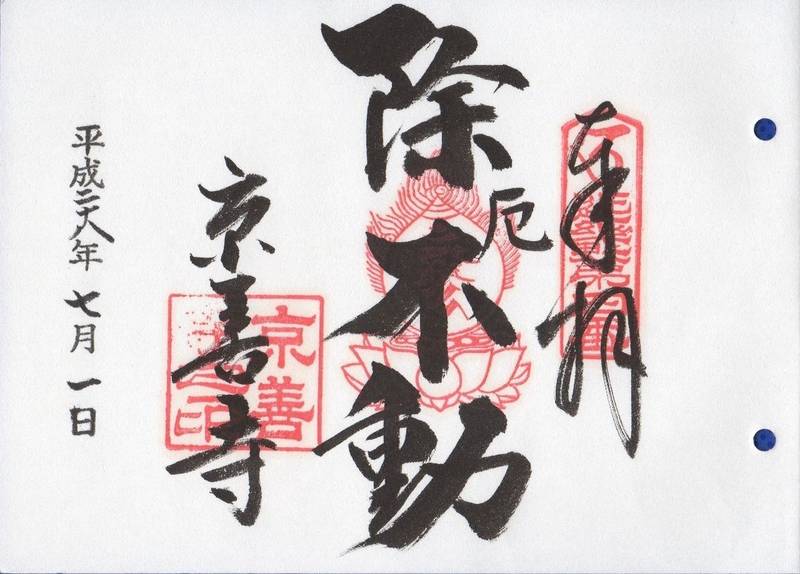 奉拝
除厄不動
京善寺
平成二十八年七月一日
京善